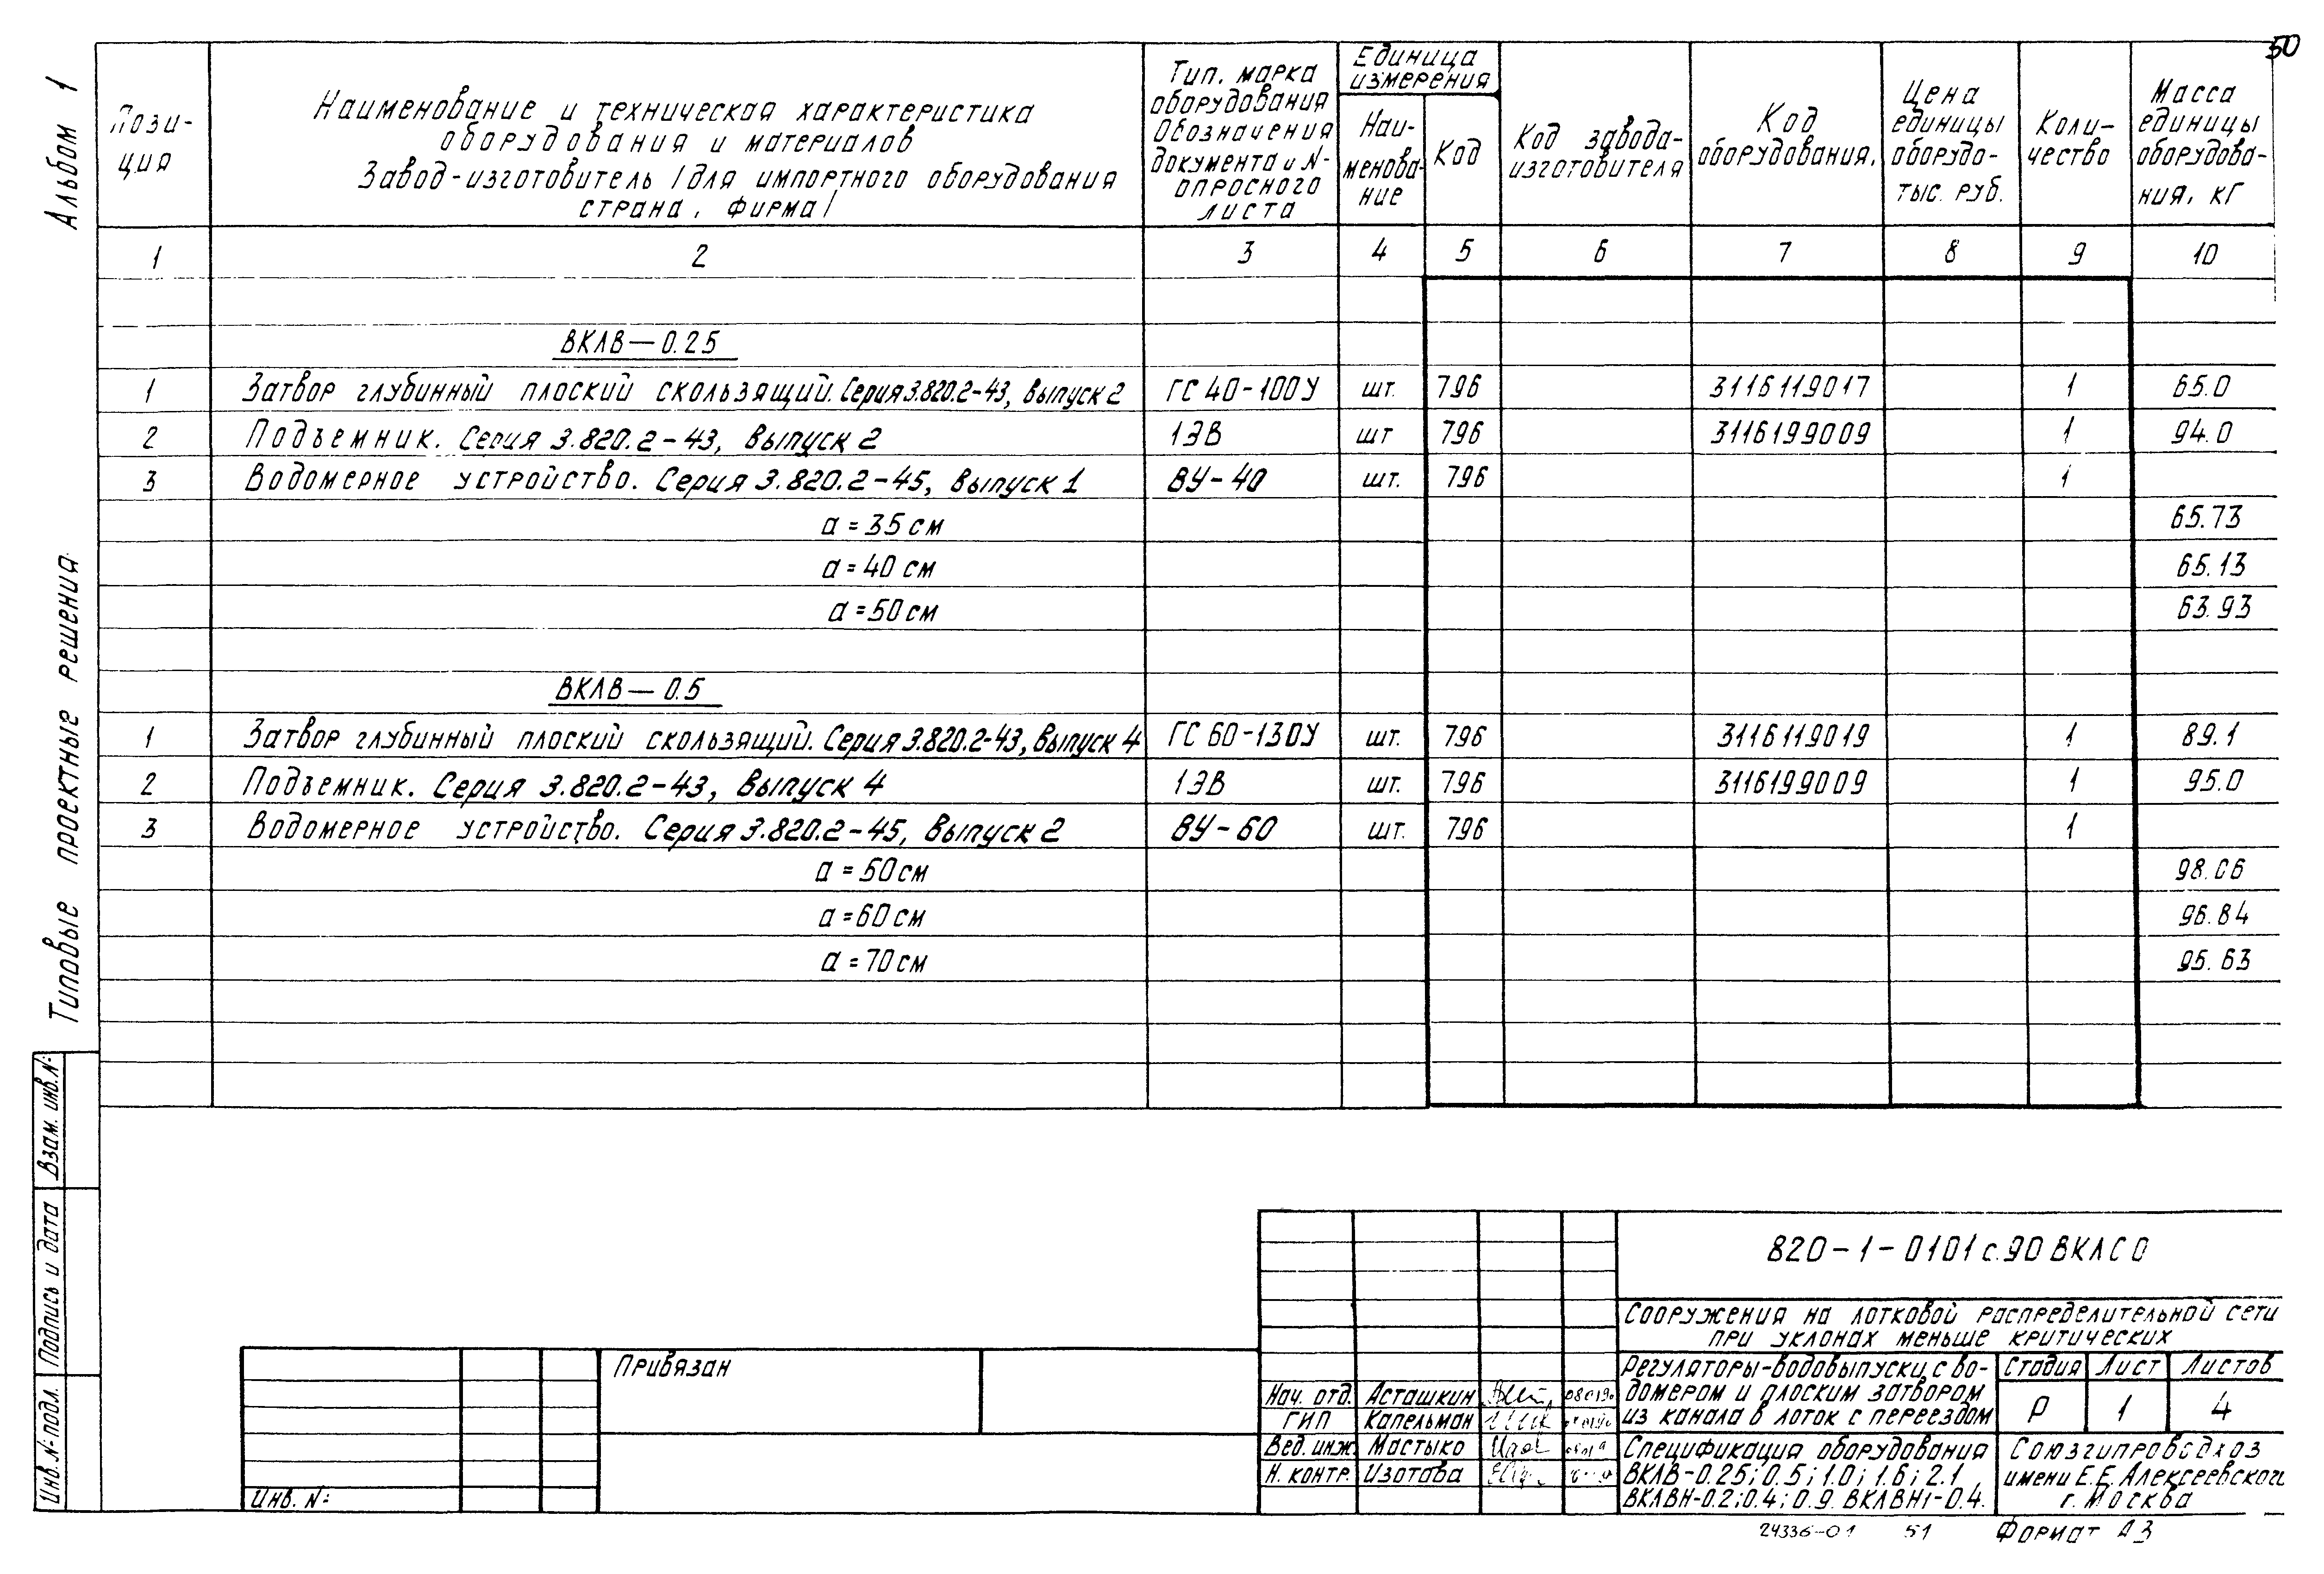 50
Альбом 1
Типовые проектные решения
Пози-
ция
Наименование и техническая характеристика
оборудования и материалов
Завод-изготовитель /для импортного оборудования
страна, фирма/
Тип, марка
оборудования
Обозначения
документа и N-
опросного
листа
Единица
измерения
Наи-
менова-
ние
Код
Код завода-
изготовителя
Код
оборудования,
Цена
единицы
оборудо-
тыс. руб.
Коли-
чество
Масса
единицы
оборудова-
ния, кг
1 2 3 4 5 6 7 8 9 10
ВКЛВ—0.25
1 Затвор глубинный плоский скользящий. Серия 3.820.2-43, Выпуск 2 ГС 40-100У шт. 796 3116119017 1 65.0
2 Подъемник. Серия 3.820.2-43, Выпуск 2 1ЭВ шт 796 3116199009 1 94.0
3 Водомерное устройство. Серия 3.820.2-45, Выпуск 1 ВУ-40 шт. 796 1
а = 35 см 65.73
а = 40 см 65.13
а = 50 см 63.93
ВКЛВ — 0.5
1 Затвор глубинный плоский скользящий. Серия 3.820.2-43, Выпуск 4 ГС 60-130У шт. 796 3116119019 1 89.1
2 Подъемник. Серия 3.820.2-43, Выпуск 4 1ЭВ шт. 796 3116199009 1 95.0
3 Водомерное устройство. Серия 3.820.2-45, Выпуск 2 ВУ-60 шт. 796 1
а = 50 см 98.06
а = 60 см 96.84
а = 70 см 95.63
Взам. инв. N:
Подпись и дата
Инв. N: подл.
Привязан
Инв. N:
820-1-0101 с.90 ВКЛ СО
Сооружения на лотковой распределительной сети
при уклонах меньше критических
Регуляторы-водовыпуски с во-
домером и плоским затвором
из канала в лоток с переездом
Стадия Лист Листов
Р 1 4
Нач. отд. Асташкин 080190
ГИП Капельман
Вед. инж. Мастыко
Н. контр. Изотова
Спецификация оборудования
ВКЛВ-0.25; 0.5; 1.0; 1.6; 2.1
ВКЛВН-0.2; 0.4; 0.9. ВКЛВН1-0.4.
Союзгипроводхоз
имени Е.Е. Алексеевского
г. Москва
24336-01 51 Формат А3